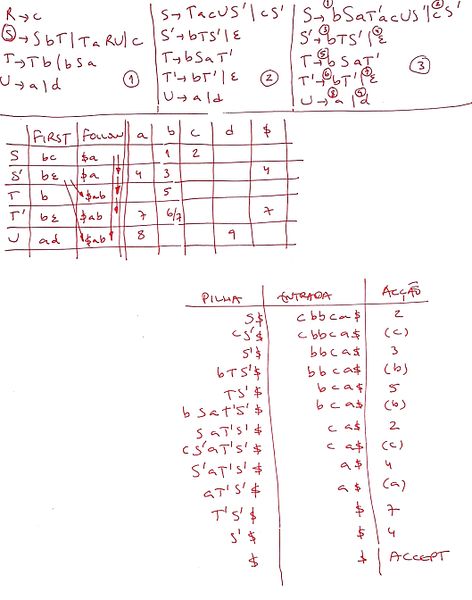 R → c
Ⓢ → S b T | T a R U | c
T → T b | b S a
U → a | d
①
S → T a c U S' | c S'
S' → b T S' | ε
T → b S a T'
T' → b T' | ε
U → a | d
②
S → ① b S a T' a c U S' | ② c S'
S' → ③ b T S' | ④ ε
T → ⑤ b S a T'
T' → ⑥ b T' | ⑦ ε
U → ⑧ a | ⑨ d
③
FIRST FOLLOW a b c d $
S bc $a 1 2
S' bε $a 4 3 4
T b $ab 5
T' bε $ab 7 6/7 7
U ad $ab 8 9
PILHA ENTRADA ACÇÃO
S$ cbbca$ 2
cS'$ cbbca$ (c)
S'$ bbca$ 3
bTS'$ bbca$ (b)
TS'$ bca$ 5
bSaT'S'$ bca$ (b)
SaT'S'$ ca$ 2
cS'aT'S'$ ca$ (c)
S'aT'S'$ a$ 4
aT'S'$ a$ (a)
T'S'$ $ 7
S'$ $ 4
$ $ ACCEPT